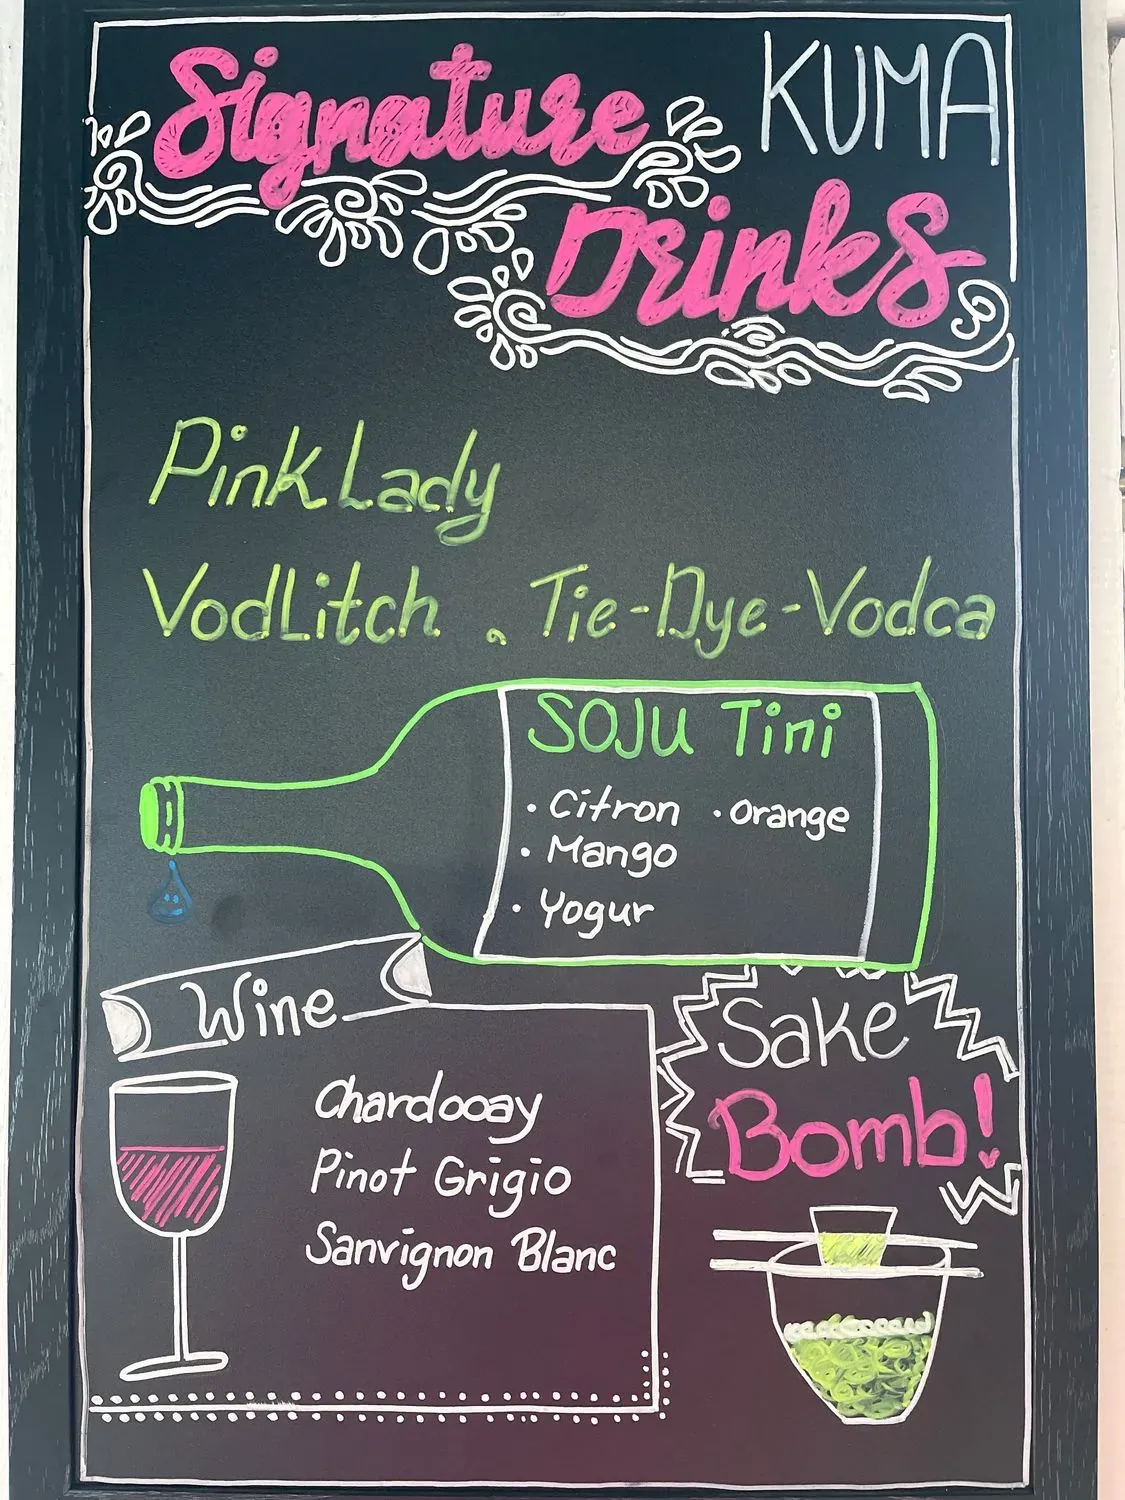 Signature
KUMA
Drinks
Pink Lady
VodLitch . Tie-Dye-Vodca
SOJU Tini
• Citron • Orange
• Mango
• Yogur
Wine
Chardooay
Pinot Grigio
Sanvignon Blanc
Sake
Bomb!